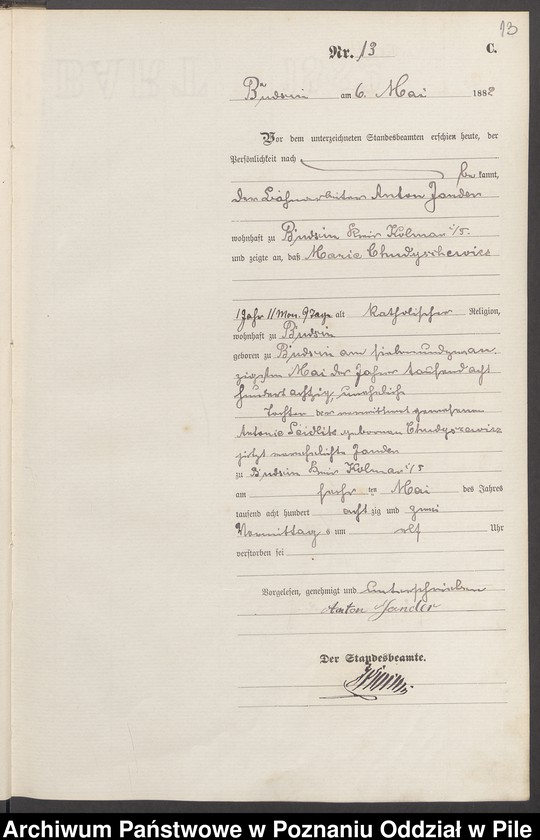 13
Nr. 13 C.
Budsin am 6. Mai 1882
Vor dem unterzeichneten Standesbeamten erschien heute, der
Persönlichkeit nach
be kannt,
der Lohnarbeiter Anton Jander
wohnhaft zu Budsin Kreis Kolmar i/P.
und zeigte an, daß Marie Chudyschewicz
1 Jahr 11 Mon. 9 Tage alt katholischer Religion,
wohnhaft zu Budsin
geboren zu Budsin am siebenundzwan
zigsten Mai des Jahres tausend acht
hundert achtzig, uneheliche
Tochter der verwittwet gewesenen
Antonie Seidlitz geborenen Chudyszewicz
jetzt verehelichte Jander
zu Budsin Kreis Kolmar i/P
am sechs ten Mai des Jahres
tausend acht hundert acht zig und zwei
Vormittag s um elf Uhr
verstorben sei
Vorgelesen, genehmigt und unterschrieben
Anton Jander
Der Standesbeamte.
Archiwum Państwowe w Poznaniu Oddział w Pile